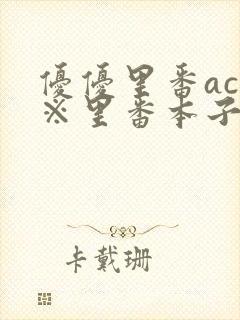 優優里番ac
※里番本子
卡戴珊